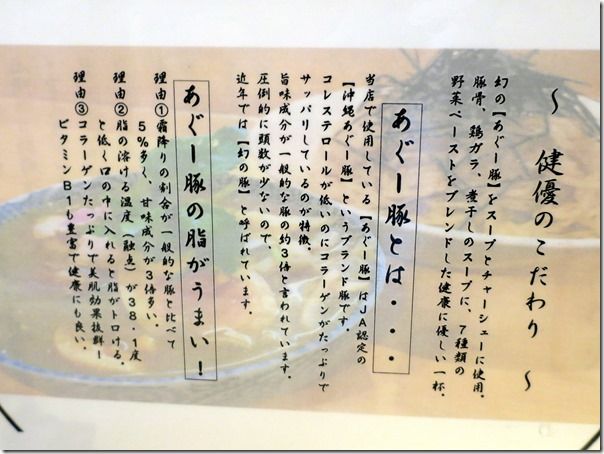 ～ 健優のこだわり ～
幻の【あぐー豚】をスープとチャーシューに使用。
豚骨、鶏ガラ、煮干しのスープに、7種類の
野菜ペーストをブレンドした健康に優しい一杯。
あぐー豚とは・・・
当店で使用している【あぐー豚】はJA認定の
【沖縄あぐー豚】というブランド豚です。
コレステロールが低いのにコラーゲンがたっぷりで
サッパリしているのが特徴。
旨味成分が一般的な豚の約3倍と言われています。
圧倒的に頭数が少ないので、
近年では【幻の豚】と呼ばれています。
あぐー豚の脂がうまい！
理由①霜降りの割合が一般的な豚と比べて
5%多く、甘味成分が3倍多い。
理由②脂の溶ける温度（融点）が38.1度
と低く口の中に入れると脂がトロける。
理由③コラーゲンたっぷりで美肌効果抜群ー
ビタミンB1も豊富で健康にも良い。